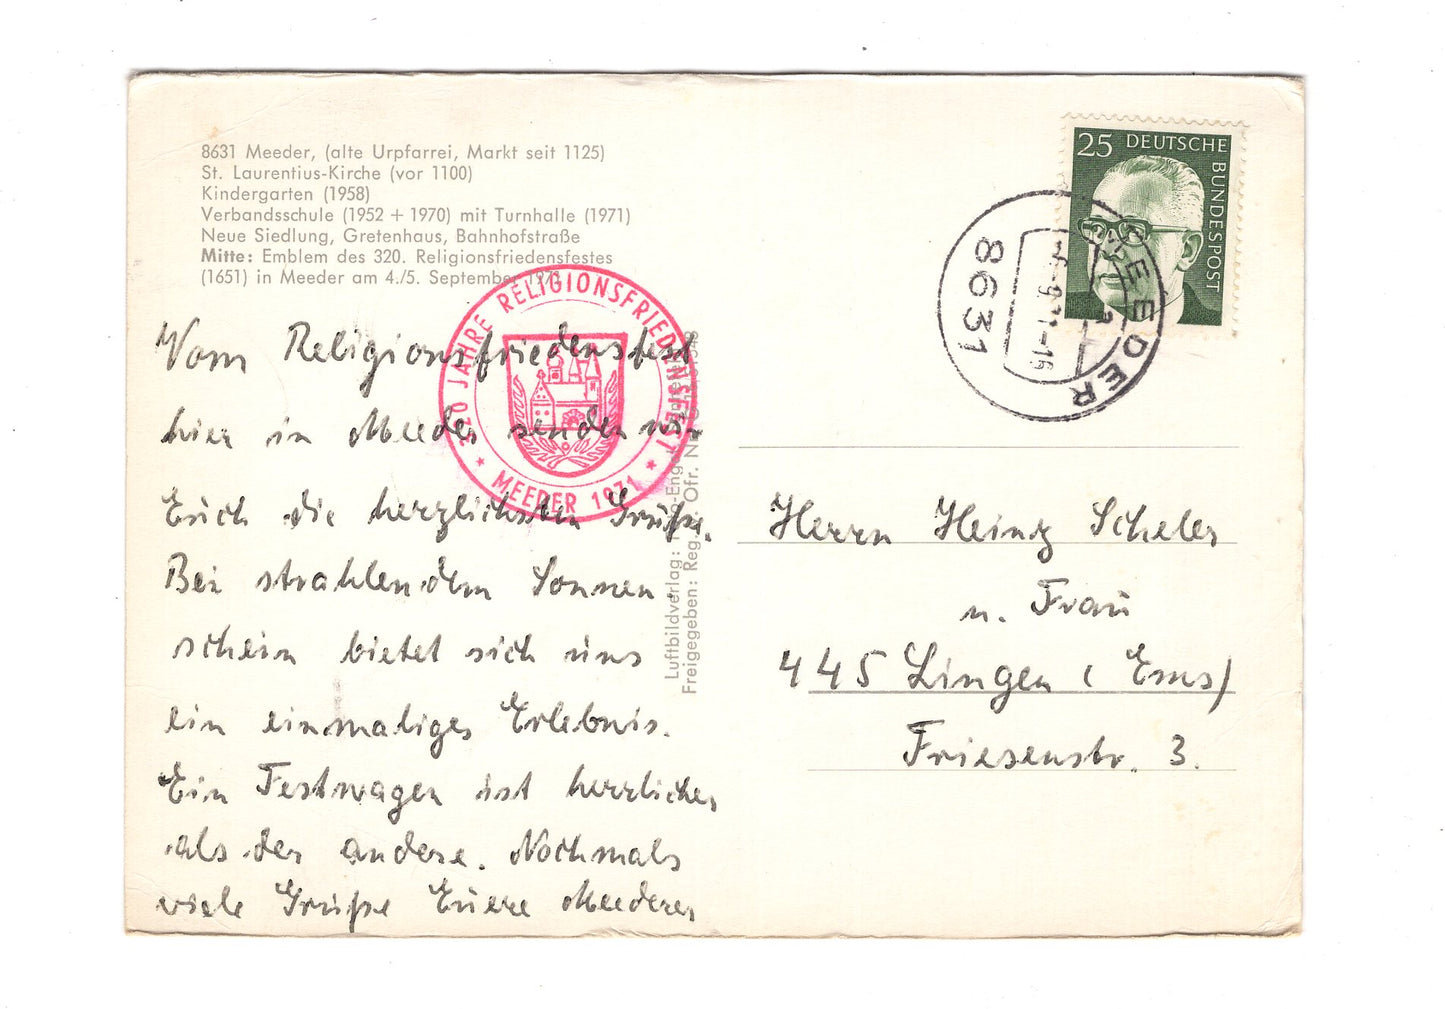 8631 Meeder, (alte Urpfarrei, Markt seit 1125)
St. Laurentius-Kirche (vor 1100)
Kindergarten (1958)
Verbandsschule (1952 + 1970) mit Turnhalle (1971)
Neue Siedlung, Gretenhaus, Bahnhofstraße
Mitte: Emblem des 320. Religionsfriedensfestes
(1651) in Meeder am 4./5. September 1971
25 DEUTSCHE
BUNDESPOST
8631
MEEDER
320 JAHRE RELIGIONSFRIEDENSFEST
MEEDER 1971
Vom Religionsfriedensfest
hier in Meeder senden wir
Euch die herzlichsten Grüße.
Bei strahlendem Sonnen-
schein bietet sich uns
ein einmaliges Erlebnis.
Ein Festwagen ist herrlicher
als der andere. Nochmals
viele Grüße Euere Meederer
Luftbildverlag:
Freigegeben: Reg. Ofr.
Herrn Heinz Scheler
u. Frau
445 Lingen (Ems)
Friesenstr. 3.